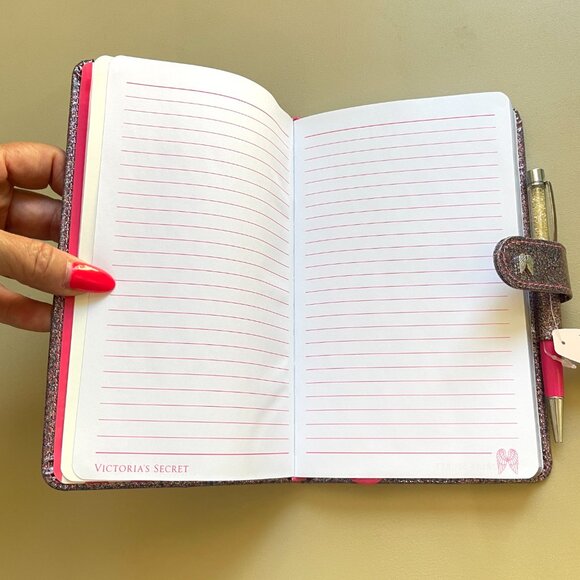 Victoria's Secret